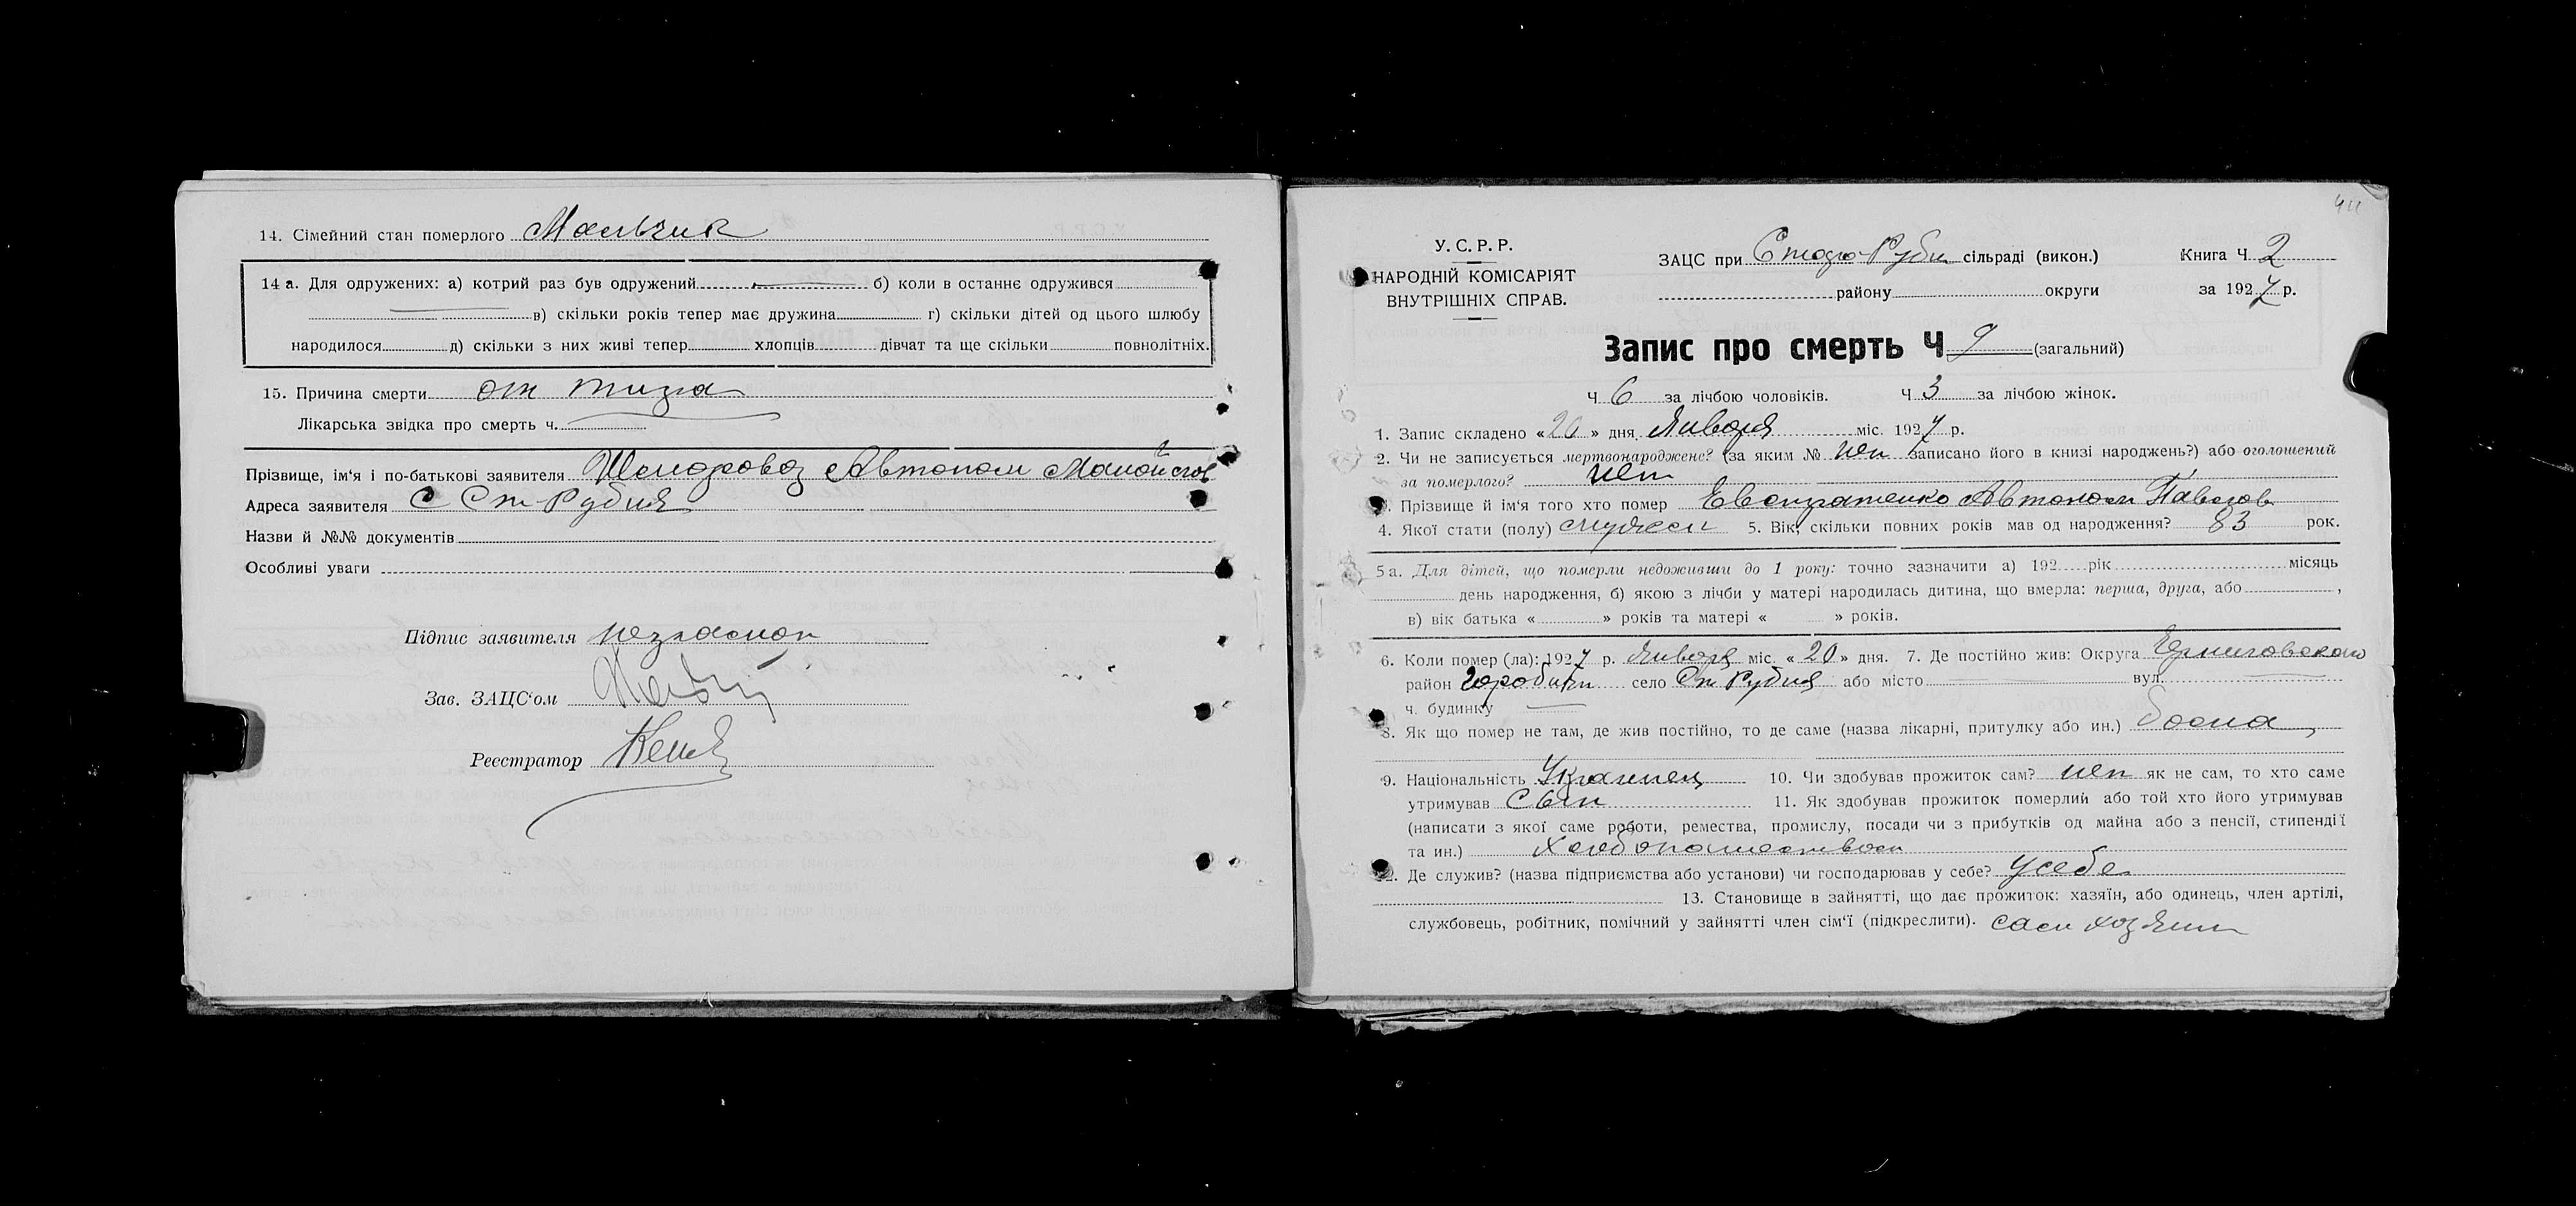 14. Сімейний стан померлого Мальчик
14 а. Для одружених: а) котрий раз був одружений б) коли в останнє одружився
в) скільки років тепер має дружина г) скільки дітей од цього шлюбу
народилося д) скільки з них живі тепер хлопців дівчат та ще скільки повнолітніх.
15. Причина смерти от тифа
Лікарська звідка про смерть ч.
Прізвище, ім'я і по-батькові заявителя Автоном
Адреса заявителя С Ст-Рудня
Назви й №№ документів
Особливі уваги
Підпис заявителя неграмот
Зав. ЗАЦС'ом
Реєстратор
У. С. Р. Р.
НАРОДНІЙ КОМІСАРІЯТ
ВНУТРІШНІХ СПРАВ.
ЗАЦС при Старо-Рудн сільраді (викон.)
району округи
Книга Ч 2
за 1927 р.
Запис про смерть Ч 9 (загальний)
Ч 6 за лічбою чоловіків. Ч 3 за лічбою жінок.
1. Запис складено «20» дня Января міс. 1927 р.
2. Чи не записується мертвонароджене? (за яким № нет записано його в книзі народжень?) або оголошений
за померлого? нет
3. Прізвище й ім'я того хто помер Евстратенко Автоном Павлов
4. Якої стати (полу) мужеск 5. Вік, скільки повних років мав од народження? 83 рок.
5 а. Для дітей, що померли недоживши до 1 року: точно зазначити а) 192 рік місяць
день народження, б) якою з лічби у матері народилась дитина, що вмерла: перша, друга, або ,
в) вік батька « » років та матері « » років.
6. Коли помер (ла): 1927 р. Января міс. «20» дня. 7. Де постійно жив: Округа Черниговского
район Городнян село Ст Рудня або місто вул.
ч. будинку
8. Як що помер не там, де жив постійно, то де саме (назва лікарні, притулку або ин.) дома
9. Національність Украинец 10. Чи здобував прожиток сам? нет як не сам, то хто саме
утримував Сын 11. Як здобував прожиток померлий або той хто його утримував
(написати з якої саме роботи, ремества, промислу, посади чи з прибутків од майна або з пенсії, стипендії
та ин.) Хлебопашеством
12. Де служив? (назва підприємства або установи) чи господарював у себе? усебе
13. Становище в зайнятті, що дає прожиток: хазяїн, або одинець, член артілі,
службовець, робітник, помічний у зайнятті член сім'ї (підкреслити). сам хозяин